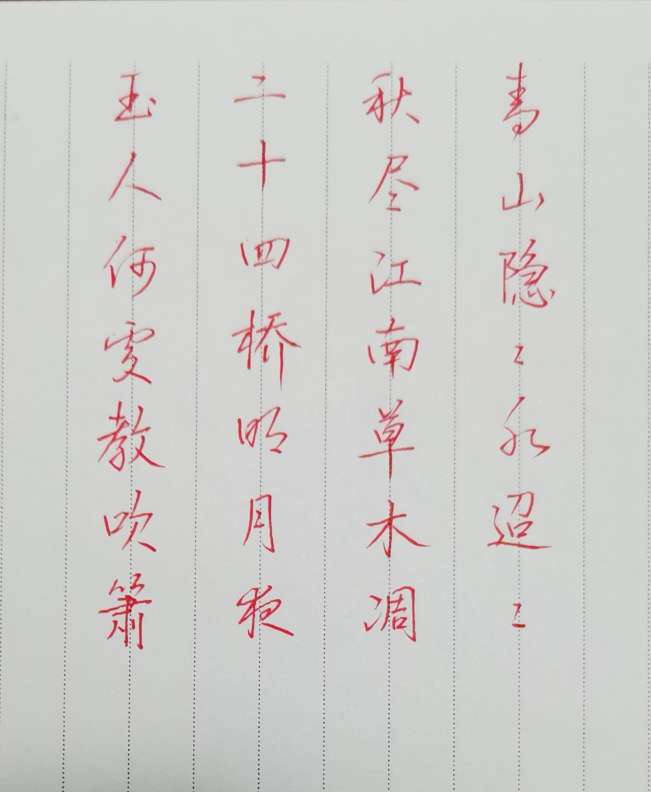 青山隐〻水迢〻
秋尽江南草木凋
二十四桥明月夜
玉人何处教吹箫